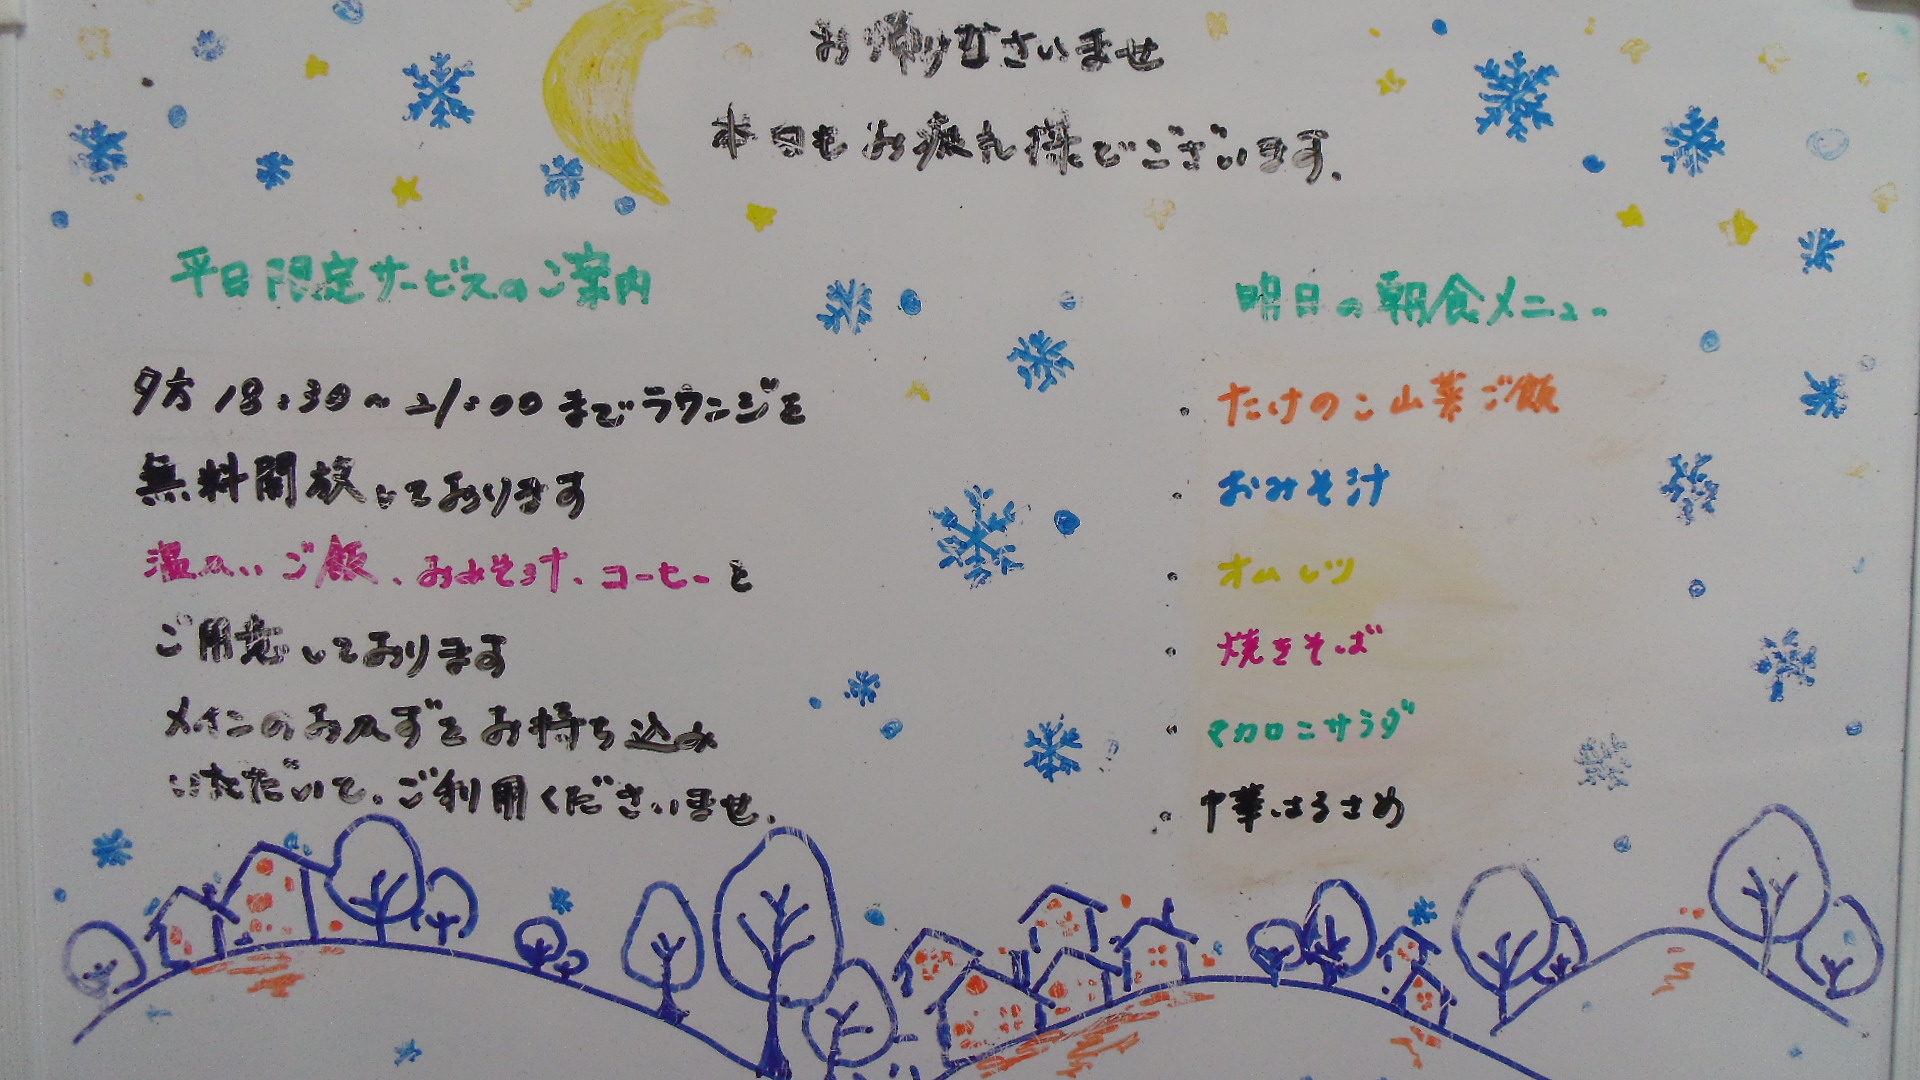 お帰りなさいませ
本日もお疲れ様でございます。
平日限定サービスのご案内
夕方18:30~21:00までラウンジを
無料開放しております
温かいご飯、おみそ汁、コーヒーを
ご用意しております
メインのおかずをお持ち込み
いただいて、ご利用くださいませ。
明日の朝食メニュー
・たけのこ山菜ご飯
・おみそ汁
・オムレツ
・焼きそば
・マカロニサラダ
・中華はるさめ